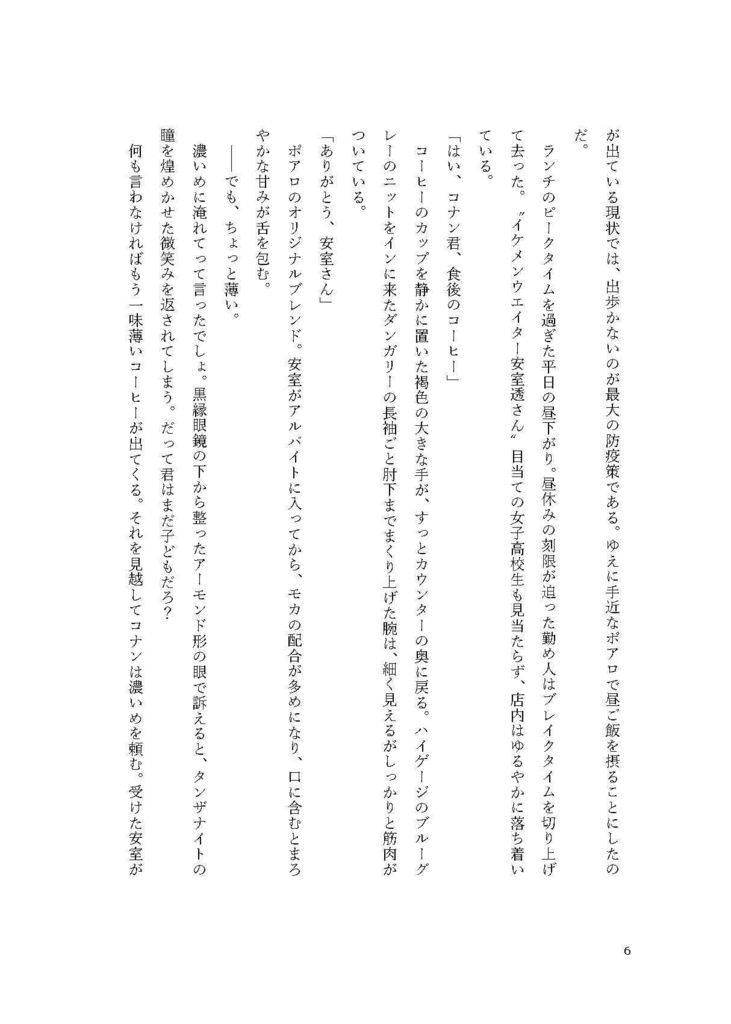 が出ている現状では、出歩かないのが最大の防疫策である。ゆえに手近なポアロで昼ご飯を摂ることにしたの
だ。
　ランチのピークタイムを過ぎた平日の昼下がり。昼休みの刻限が迫った勤め人はブレイクタイムを切り上げ
て去った。〝イケメンウエイター安室透さん〟目当ての女子高校生も見当たらず、店内はゆるやかに落ち着い
ている。
「はい、コナン君、食後のコーヒー」
　コーヒーのカップを静かに置いた褐色の大きな手が、すっとカウンターの奥に戻る。ハイゲージのブルーグ
レーのニットをインに来たダンガリーの長袖ごと肘下までまくり上げた腕は、細く見えるがしっかりと筋肉が
ついている。
「ありがとう、安室さん」
　ポアロのオリジナルブレンド。安室がアルバイトに入ってから、モカの配合が多めになり、口に含むとまろ
やかな甘みが舌を包む。
　――でも、ちょっと薄い。
　濃いめに淹れてって言ったでしょ。黒縁眼鏡の下から整ったアーモンド形の眼で訴えると、タンザナイトの
瞳を煌めかせた微笑みを返されてしまう。だって君はまだ子どもだろ？
　何も言わなければもう一味薄いコーヒーが出てくる。それを見越してコナンは濃いめを頼む。受けた安室が
6